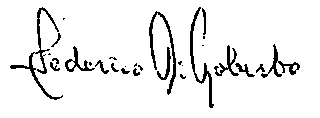 Federico Di Golusbo